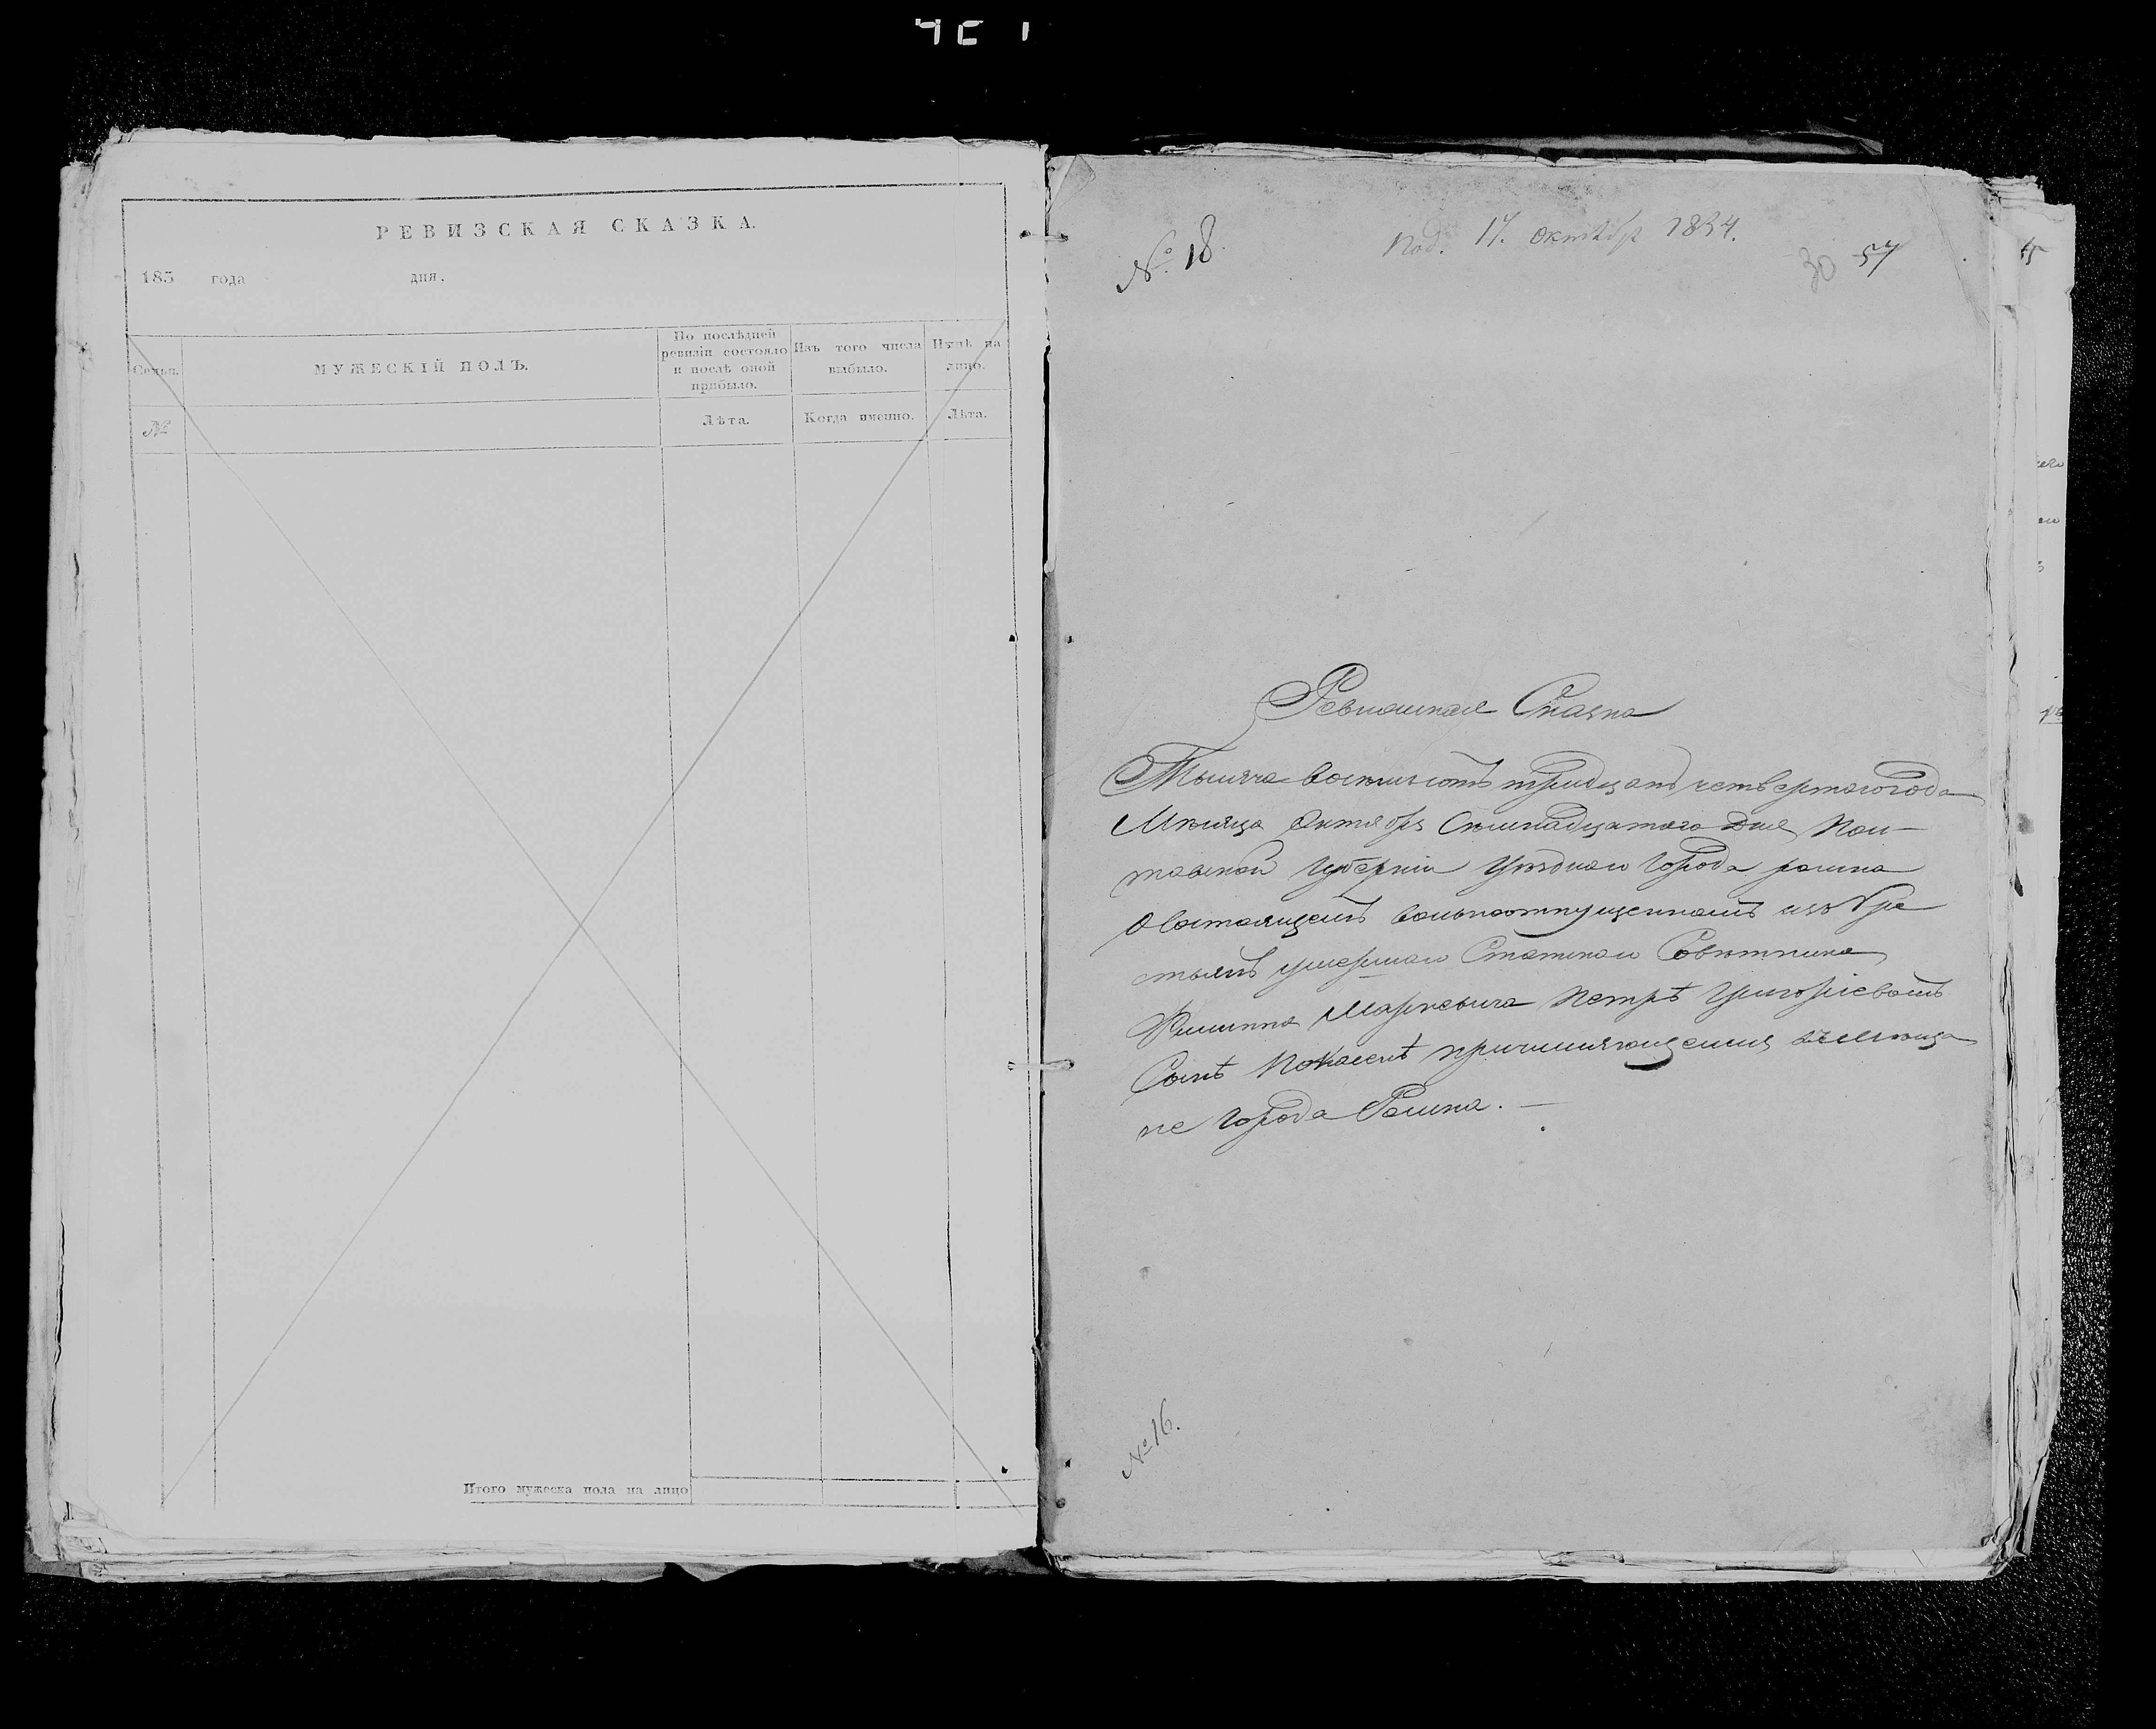 РЕВИЗСКАЯ СКАЗКА.
183 года дня.
Семьи.
МУЖЕСКІЙ ПОЛЪ.
По послѣдней ревизіи состояло и послѣ оной прибыло.
Изъ того числа выбыло.
Нынѣ на лицо.
№
Лѣта.
Когда именно.
Лѣта.
Итого мужеска пола на лицо
№ 18.
Под. 17. октября 1834.
30 57
Ревизская Сказка
Тысяча восемьсотъ тридцать четвертаго года
Мѣсяца Октября Семнадцатаго Дня Пол-
тавской Губерніи Уѣзднаго Города ромна
О состоящемъ вольноотпущенномъ изъ Кре
стьянъ умершаго Статскаго Совѣтника
Филиппа Маркевича Петрѣ Григорьевомъ
Сынѣ причисляющемся
не города Ромна. —
№ 16.